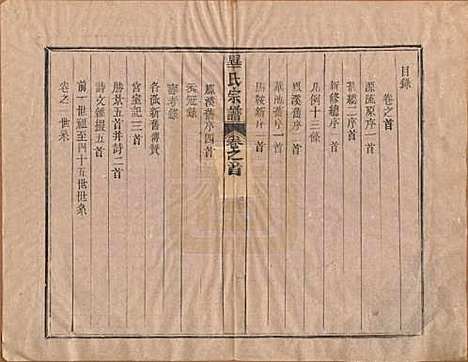 目錄
卷之首
源流原序一首
祖蹟二首
新修總序一首
凡例十三條
鳳溪舊序一首
華池舊序一首
馬鞍新序一首
畢氏宗譜
卷之首
鳳溪舊序四首
冠錄
考錄
各派新舊譜贊
宮室記三首
勝景五首并詩二首
詩文雜掇五首
前一世祖至四十五世世系
卷之一世系